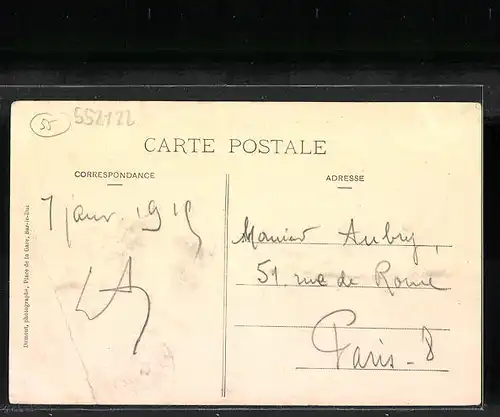 55
552122
CARTE POSTALE
CORRESPONDANCE
ADRESSE
7 janv. 1919
Monsieur Aubry,
51 rue de Rome
Paris - 8
Dumont, photographe, Place de la Gare, Bar-le-Duc